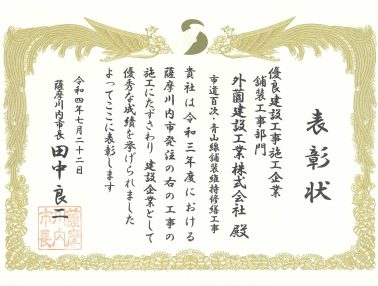 表彰状
優良建設工事施工企業
舗装工事部門
外薗建設工業株式会社 殿
市道百次・青山線舗装維持修繕工事
貴社は令和三年度における
薩摩川内市発注の右の工事の
施工にたずさわり建設企業として
優秀な成績を挙げられました
よってここに表彰します
令和四年七月二十二日
薩摩川内市長 田中良二
薩摩
川内
市長